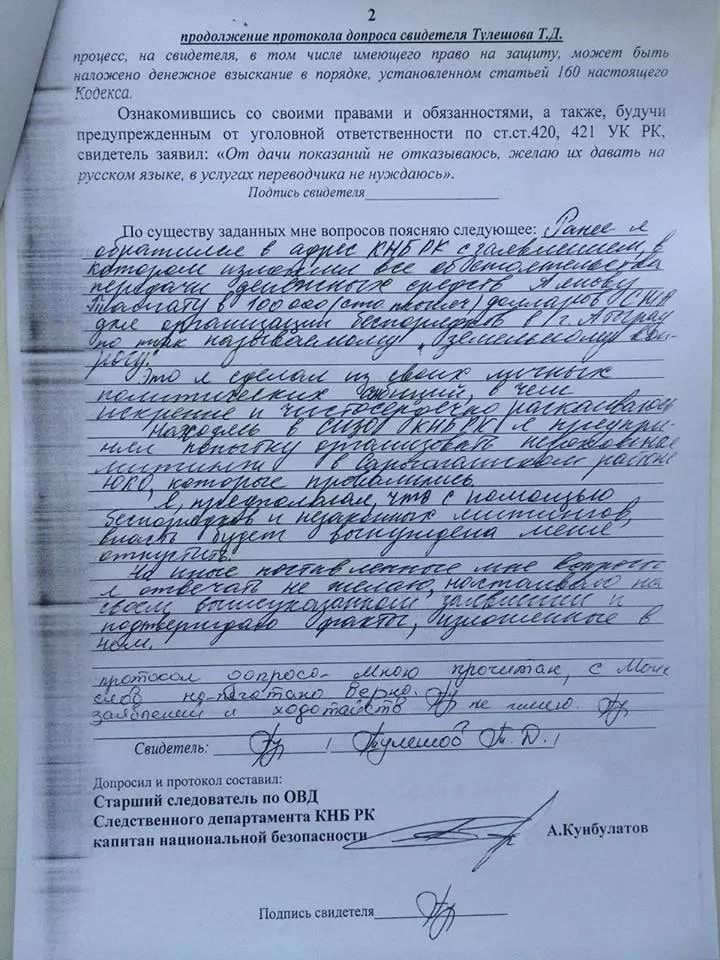 2
продолжение протокола допроса свидетеля Тулешова Т.Д.
процесс, на свидетеля, в том числе имеющего право на защиту, может быть
наложено денежное взыскание в порядке, установленном статьей 160 настоящего
Кодекса.
Ознакомившись со своими правами и обязанностями, а также, будучи
предупрежденным от уголовной ответственности по ст.ст.420, 421 УК РК,
свидетель заявил: «От дачи показаний не отказываюсь, желаю их давать на
русском языке, в услугах переводчика не нуждаюсь».
Подпись свидетеля
По существу заданных мне вопросов поясняю следующее: Ранее я
обратился в адрес КНБ РК с заявлением, в
котором изложил все обстоятельства
передачи денежных средств Аянову
Талгату в 100 000 (сто тысяч) долларов США
для организации беспорядков в г. Атырау
по так называемому "земельному воп-
росу".
Это я сделал из своих личных
политических амбиций, в чем
искренне и чистосердечно раскаиваюсь
Находясь в СИЗО КНБ РК я предпри-
нял попытку организовать незаконные
митинги в Сарыагашском районе
ЮКО, которые провалились.
Я, предполагал, что с помощью
беспорядков и незаконных митингов,
власть будет вынуждена меня
отпустить.
На иные поставленные мне вопросы
я отвечать не желаю, настаиваю на
своем вышеуказанном заявлении и
подтверждаю факты, изложенные в
нем.
протокол допроса мною прочитан, с моих
слов напечатано верно.
заявлений и ходотайств не имею.
Свидетель: / Тулешов Т. Д. /
Допросил и протокол составил:
Старший следователь по ОВД
Следственного департамента КНБ РК
капитан национальной безопасности А.Кунбулатов
Подпись свидетеля